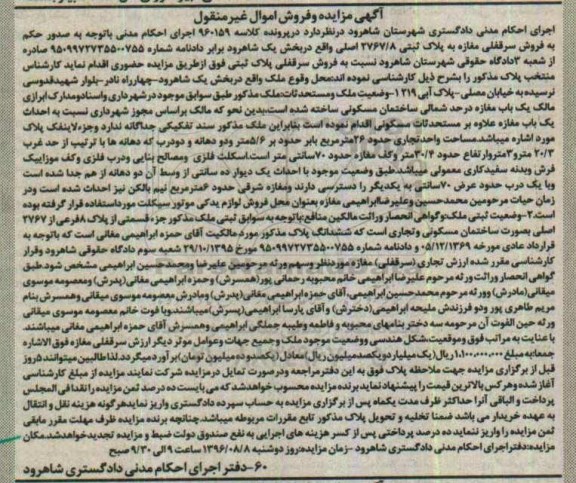 آگهی مزایده وفروش اموال غیرمنقول
اجرای احکام مدنی دادگستری شهرستان شاهرود درنظردارد درپرونده کلاسه ۹۶۰۱۵۹ اجرای احکام مدنی باتوجه به صدور حکم
به فروش سرقفلی مغازه به پلاک ثبتی ۲۷۶۷/۸ اصلی واقع دربخش یک شاهرود برابر دادنامه شماره ۹۵۰۹۹۷۲۷۳۵۵۰۰۷۵۵ صادره
از شعبه ۳دادگاه حقوقی شهرستان شاهرود نسبت به فروش سرقفلی پلاک ثبتی فوق ازطریق مزایده حضوری اقدام نماید کارشناس
منتخب پلاک مذکور را بشرح ذیل کارشناسی نموده اند:محل وقوع ملک واقع دربخش یک شاهرود-چهارراه نادر-بلوار شهیدقدوسی
نرسیده به خیابان مصلی-پلاک آبی ۱۲۱۹-وضعیت ملک ومستحدثات:ملک مذکور طبق سوابق موجود درشهرداری واسنادومدارک ابرازی
مالک یک باب مغازه درحد شمالی ساختمان مسکونی ساخته شده است.بدین نحو که مالک براساس مجوز شهرداری نسبت به احداث
یک باب مغازه علاوه بر مستحدثات مسکونی اقدام نموده است بنابراین ملک مذکور سند تفکیکی جداگانه ندارد وجزء لاینفک پلاک
مورد اشاره میباشد.مساحت واحدتجاری حدود ۲۶مترمربع بابر حدود بر ۵/۶متر ودو دهانه و دودرب که دهانه ها با ترتیب از حد غرب
۲۰/۳ مترو۳متروارتفاع حدود ۳۰/۴متر وکف مغازه حدود ۷۰سانتی متر است.اسکلت فلزی ومصالح بنایی ودرب فلزی وکف موزاییک
فرش وبدنه سفیدکاری معمولی میباشد.طبق وضعیت موجود با احداث یک دیوار ده سانتی از وسط آن دو دهانه از هم جدا شده است
وبا یک درب حدود عرض ۷۰سانتی به یکدیگر را دسترسی دارند ومغازه شرقی حدود ۶مترمربع نیم بالکن نیز احداث شده است ودر
زمان حیات مرحومین محمدحسین وعلیرضاابراهیمی مغازه بعنوان محل فروش لوازم یدکی موتور سیکلت مورداستفاده قرار گرفته بوده
است.۲-وضعیت ثبتی ملک وگواهی انحصار وراثت مالکین منافع:باتوجه به سوابق ثبتی ملک مذکور جزء قسمتی از پلاک ۸فرعی از ۲۷۶۷
اصلی بصورت ساختمان مسکونی و تجاری است که ششدانگ پلاک مذکور مورد مالکیت آقای حمزه ابراهیمی مغانی است که باتوجه به
قرارداد عادی مورخه ۰۵/۱۲/۱۳۶۹ و دادنامه شماره ۹۵۰۹۹۷۲۷۳۵۵۰۰۷۵۵ مورخ ۲۹/۱۰/۱۳۹۵ شعبه سوم دادگاه حقوقی شاهرود وقرار
کارشناسی مقرر شده ارزش تجاری (سرقفلی) مغازه مدنظر وسهم ورثه مرحومین علیرضا ومحمدحسین ابراهیمی مشخص شود.طبق
گواهی انحصار وراثت ورثه مرحوم علیرضا ابراهیمی خانم محبوبه رحمانی پور(همسرش) وحمزه ابراهیمی مغانی(پدرش) ومعصومه موسوی
میقانی(مادرش) وورثه مرحوم محمدحسین ابراهیمی،آقای حمزه ابراهیمی مغانی(پدرش) ومادرش معصومه موسوی میقانی وهمسرش بنام
مریم طاهری پور ودو فرزندش ملیحه ابراهیمی(دخترش) و آقای پارسا ابراهیمی(پسرش)میباشند.وبا فوت خانم معصومه موسوی میقانی
ورثه حین الفوت آن مرحومه سه دختر بنامهای محبوبه و فاطمه وطیبه جملگی ابراهیمی وهمسرش آقای حمزه ابراهیمی مغانی میباشند.
با عنایت به مراتب فوق وموقعیت،شکل هندسی ووضعیت موجود ملک وجمیع جهات وعوامل موثر دیگر ارزش سرقفلی مغازه فوق الاشاره
جمعا به مبلغ ۱،۱۰۰،۰۰۰،۰۰۰ریال(یک میلیارد ویکصدمیلیون ریال)معادل(یکصدوده میلیون تومان)برآورد میگردد.لذاطالبین میتوانند ۵روز
قبل از برگزاری مزایده جهت ملاحظه پلاک فوق به این دفتر مراجعه ودرصورت تمایل درمزایده شرکت نمایند مزایده از مبلغ کارشناسی
آغاز شده وهر کس بالاترین قیمت را پیشنهاد نماید برنده مزایده محسوب خواهدشد که می بایست ده درصد ثمن مزایده را نقدا فی المجلس
پرداخت و الباقی آنرا حداکثر ظرف مدت یکماه پس از برگزاری مزایده به حساب سپرده دادگستری واریز نمایدهرگونه هزینه نقل و انتقال
به عهده خریدار می باشد ضمنا تخلیه و تحویل پلاک مذکور تابع مقررات مربوطه میباشد.چنانچه برنده مزایده ظرف مهلت مقرر مابقی
ثمن مزایده را واریز ننماید ده درصد پرداختی پس از کسر هزینه های اجرایی به نفع صندوق دولت ضبط و مزایده تجدیدخواهدشد.مکان
مزایده:دفتراجرای احکام مدنی دادگستری شاهرود -زمان مزایده:روز دوشنبه ۱۳۹۶/۰۸/۸ ساعت ۹ الی ۹/۳۰ صبح
۶۰-دفتر اجرای احکام مدنی دادگستری شاهرود